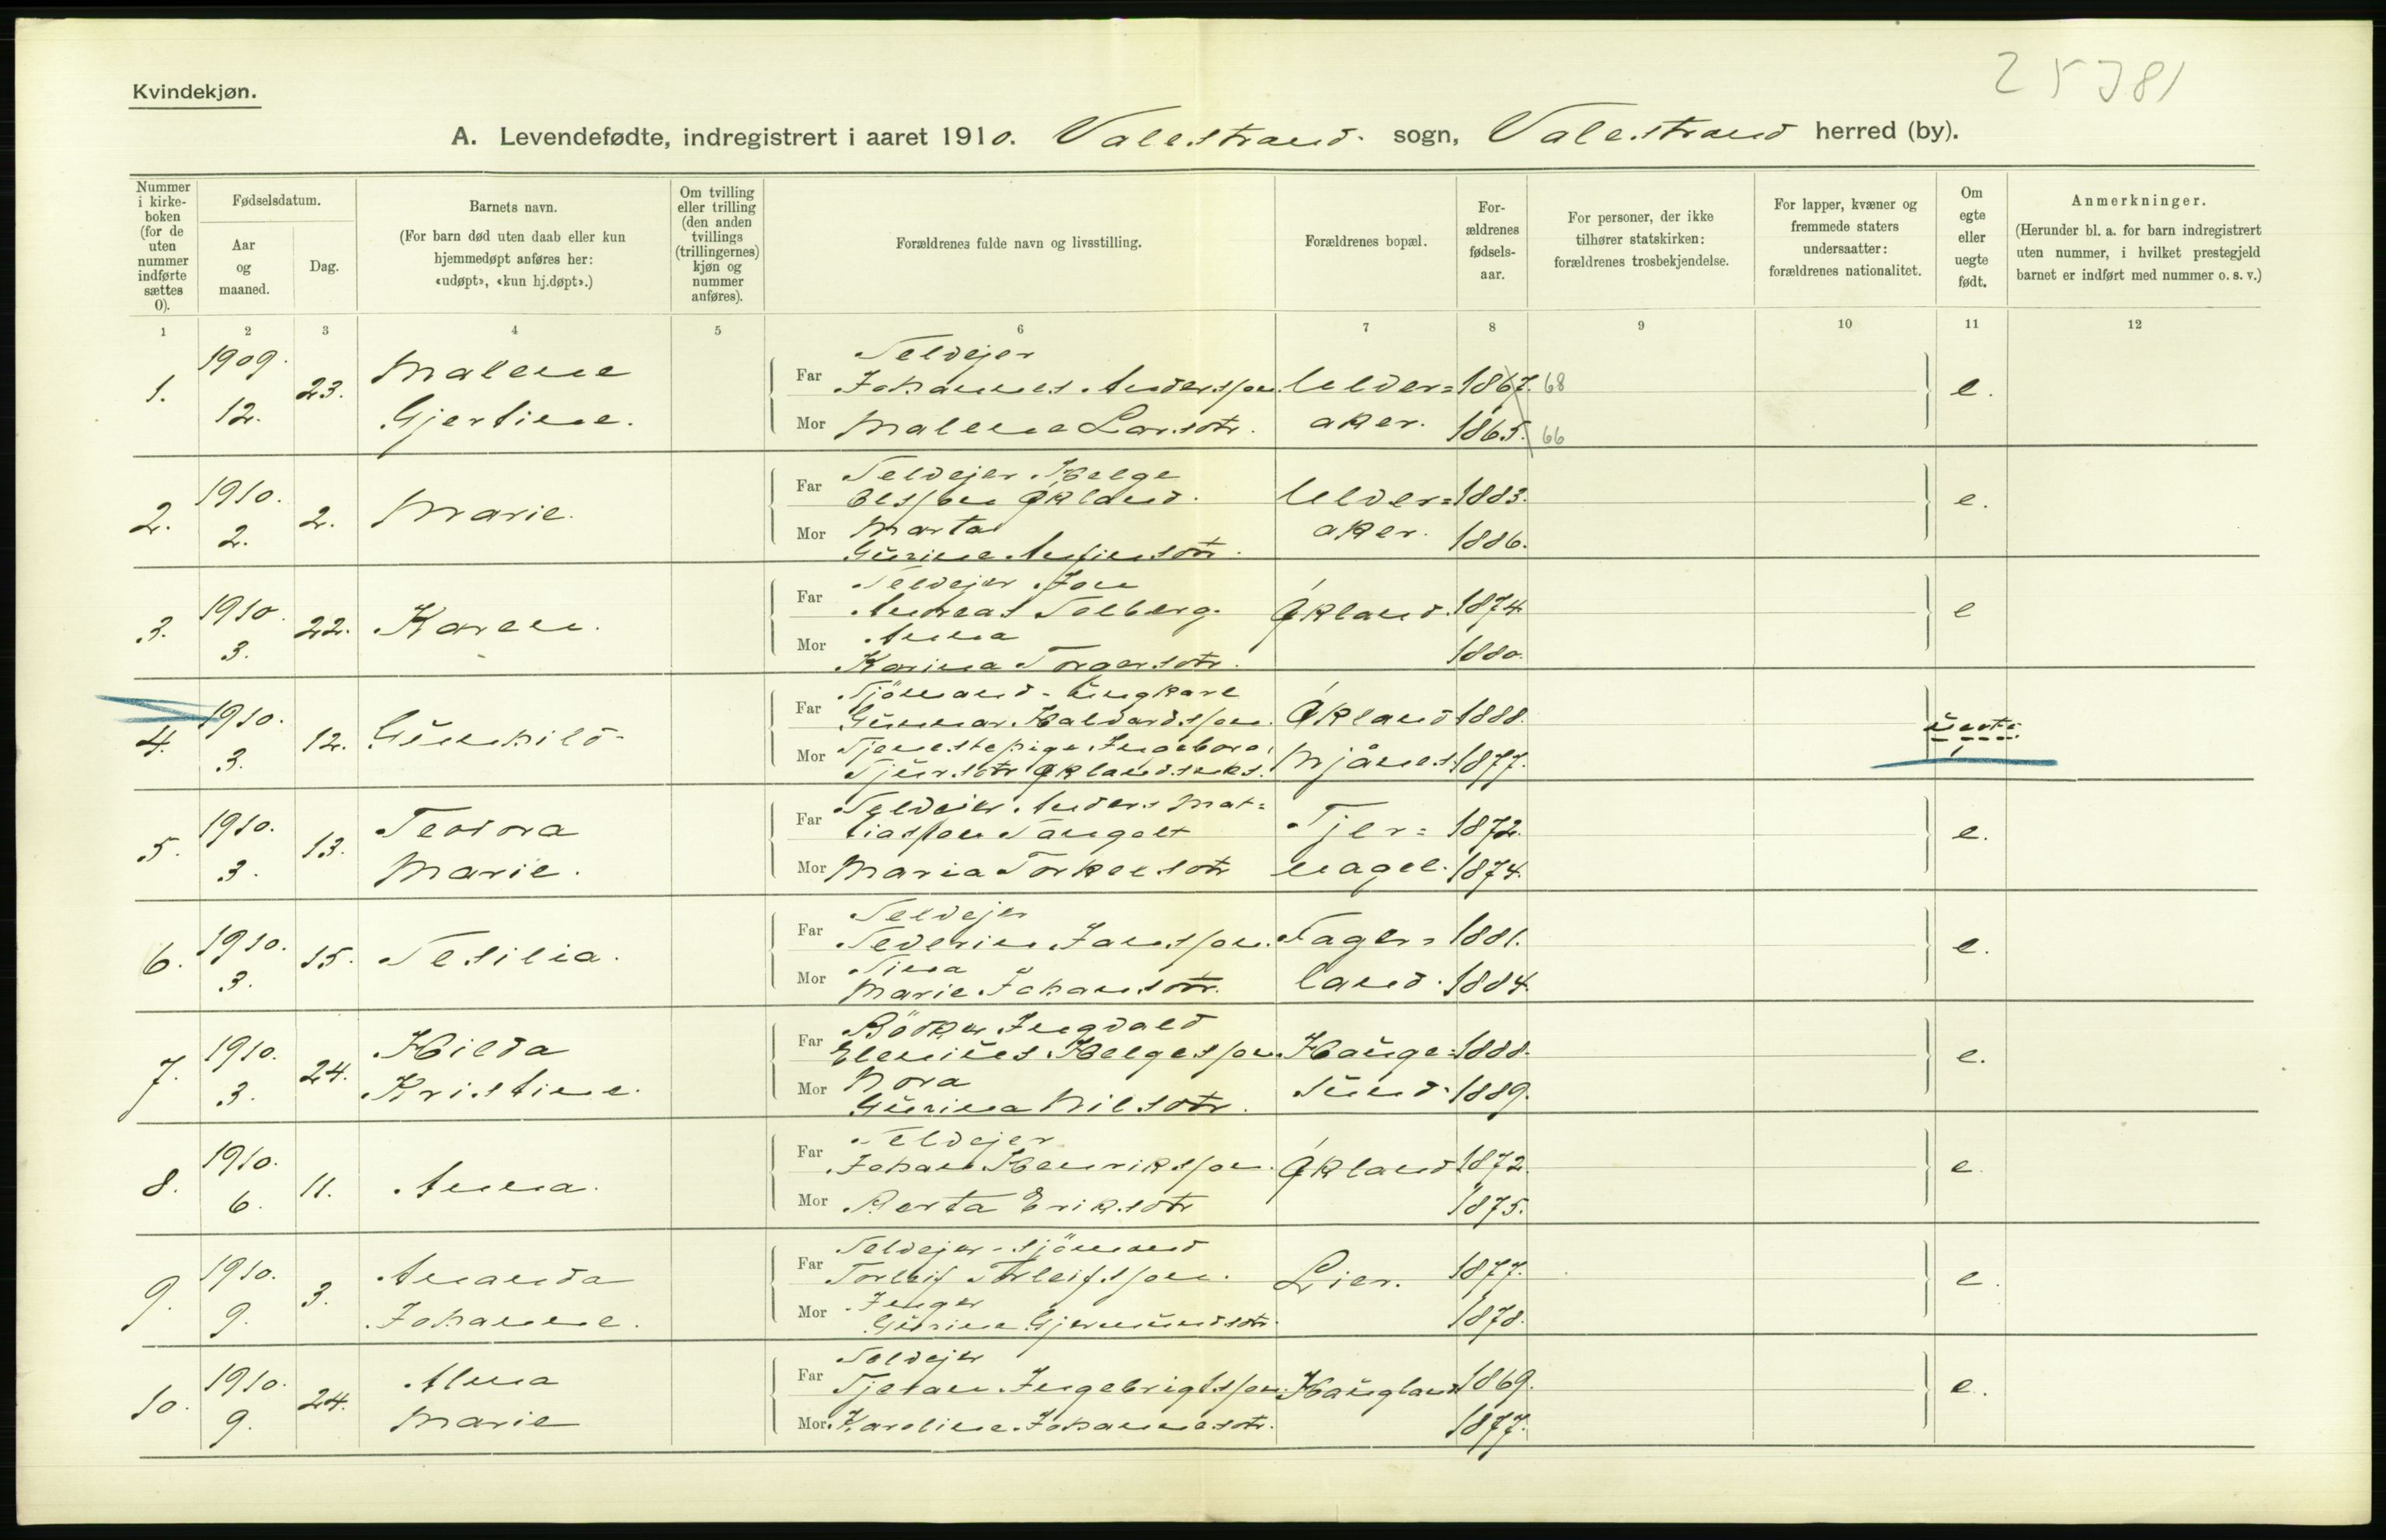 25381
Kvindekjøn.
A. Levendefødte, indregistrert i aaret 1910. Valestrand sogn, Valestrand herred (by).
Nummer i kirke-boken (for de uten nummer indførte sættes 0).
Fødselsdatum.
Aar og maaned.
Dag.
Barnets navn.
(For barn død uten daab eller kun hjemmedøpt anføres her: «udøpt», «kun hj.døpt».)
Om tvilling eller trilling (den anden tvillings (trillingernes) kjøn og nummer anføres).
Forældrenes fulde navn og livsstilling.
Forældrenes bopæl.
For-ældrenes fødsels-aar.
For personer, der ikke tilhører statskirken: forældrenes trosbekjendelse.
For lapper, kvæner og fremmede staters undersaatter: forældrenes nationalitet.
Om egte eller uegte født.
Anmerkninger.
(Herunder bl. a. for barn indregistrert uten nummer, i hvilket prestegjeld barnet er indført med nummer o. s. v.)
1 2 3 4 5 6 7 8 9 10 11 12
1. 1909. 12. 23. Malene Gjertine.
Far Selvejer Johannes Andersson. Ulder= 1867. 68 e.
Mor Malene Larsdtr. aker. 1865. 66
2. 1910. 2. 2. Marie.
Far Selvejer Helge Olsson Økland. Ulder= 1883. e.
Mor Marta Gurine dtr. aker. 1886.
3. 1910. 3. 22. Karen.
Far Selvejer Jon Andreas Solberg. Økland. 1874. e
Mor Anna Karina Torgersdtr. 1880.
4. 1910. 3. 12. Gunhild
Far Sjömand - Ungkarl Gunnar Halvardsson. Økland 1888. uegte
Mor Tjenestepige Ingeborg Sjursdtr Øklandsnes. Mjånes. 1877.
5. 1910. 3. 13. Teodora Marie.
Far Selveier Anders Mat=tiasson Tjer= 1872. e.
Mor Maria Torkelsdtr nagel. 1874.
6. 1910. 3. 15. Sesilia.
Far Selvejer Severin Jansson. Fager= 1881. e.
Mor Sina Marie Johansdtr. land. 1884.
7. 1910. 3. 24. Hilda Kristine.
Far Bödker Ingvald Elenius Helgesson. Hauge= 1888. e.
Mor Nora Gurina Nilsdtr. sund. 1889.
8. 1910. 6. 11. Anna.
Far Selvejer Johan Henriksson. Økland 1872. e.
Mor Berta Eriksdtr 1875.
9. 1910. 9. 3. Amanda Johanne.
Far Selvejer - Sjömand Torleif Torleifsson. Lier. 1877. e.
Mor Inger Gurine Gjermundsdtr. 1878.
10. 1910. 9. 24. Alma Marie
Far Selvejer Ingebrigtsson. Haugland 1869. e.
Mor Karoline Johannesdtr. 1877.